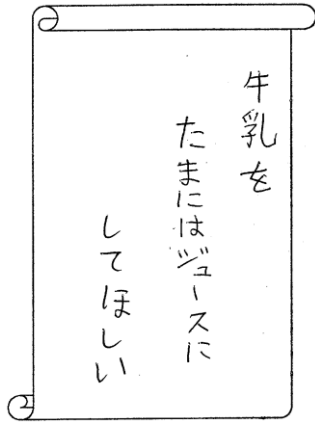 牛乳を
たまにはジュースに
してほしい